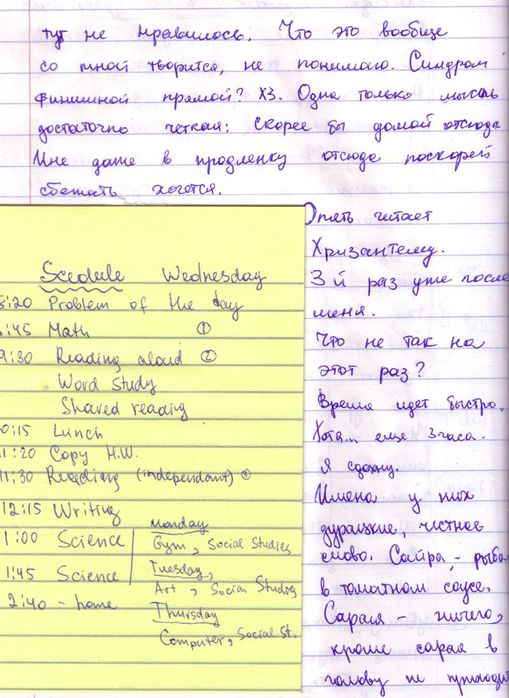 тут не нравилось. Что это вообще
со мной творится, не понимаю. Синдром
финишной прямой? ХЗ. Одна только мысль
достаточно четкая: скорее бы домой отсюда
Мне даже в продленку отсюда поскорей
сбежать хочется.
Опять читает
Хризантему.
3й раз уже после
меня.
Что не так на
этот раз?
Время идет быстро.
Хотя... еще 3 часа.
Я сдохну.
Имена у них
дурацкие, честное
слово. Сайра - рыба
в томатном соусе.
Сарая - ничего,
кроме сарая в
голову не приходит
Scedule Wednesday
8:20 Problem of the day
:45 Math ①
9:30 Reading aloud ②
Word study
Shared reading
0:15 Lunch
11:20 Copy H.W.
11:30 Reading (independant)
12:15 Writing
1:00 Science
1:45 Science
2:40 - home
Monday
Gym, Social Studies
Tuesday,
Art, Social Studies
Thursday
Computer, Social St.